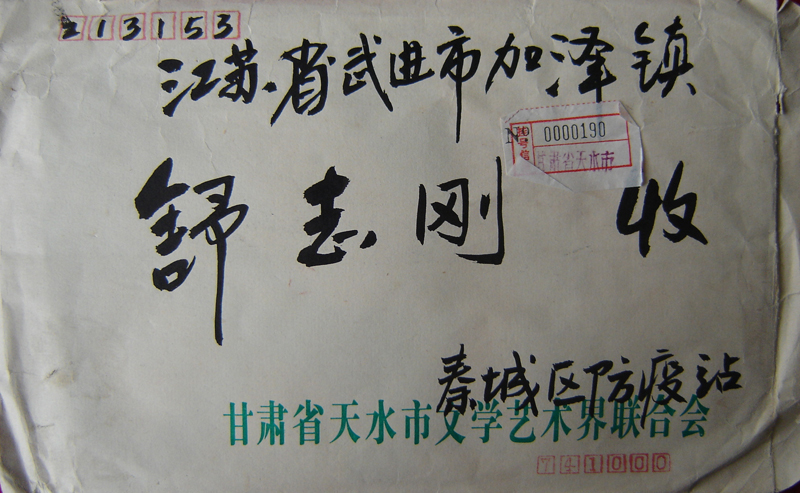 213153
江苏省武进市加泽镇
№ 0000190
甘肃省天水市
舒志刚 收
秦城区防疫站
甘肃省天水市文学艺术界联合会
741000